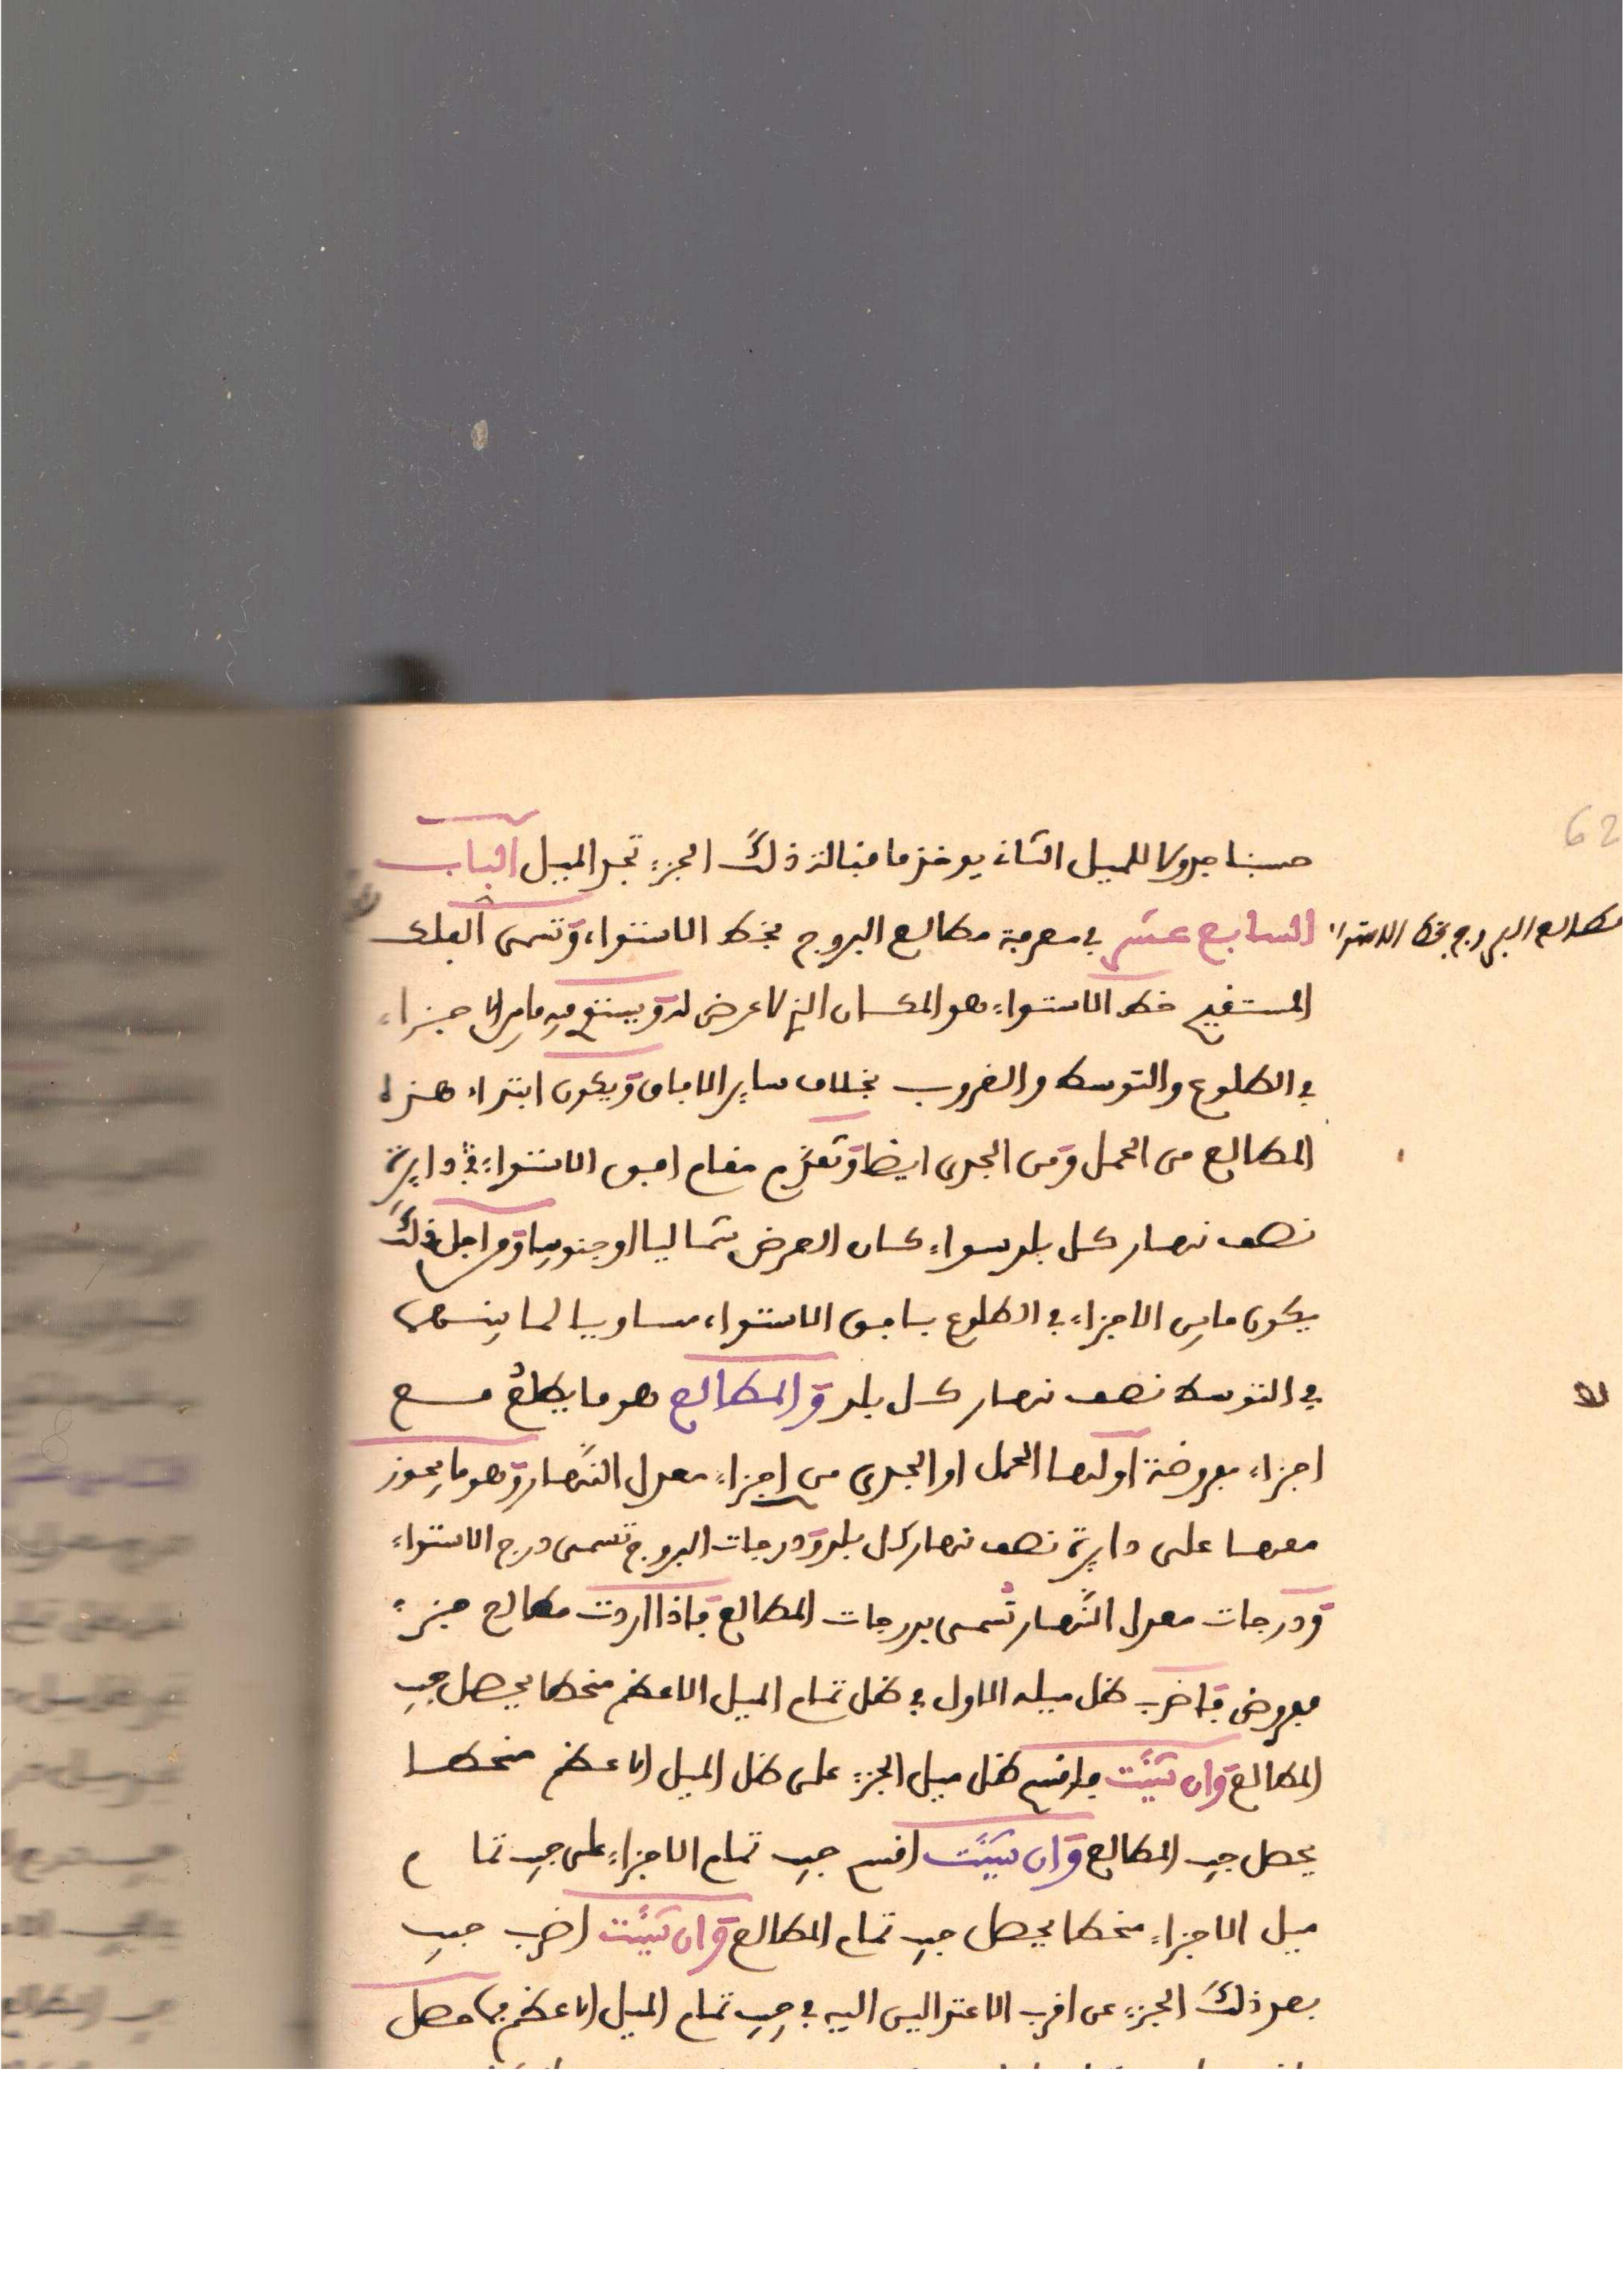 62
حسبنا جدولا للميل الثاني يوخذ ما قبالة ذلك الجزء تجد الميل الباب
السابع عشر في معرفة مطالع البروج بخط الاستواء وتسمى الفلك
مطالع البروج بخط الاستواء
المستقيم خط الاستواء هو المكان الذي لا عرض له ويستوي فيه الاجزاء
في الطلوع والتوسط والغروب بخلاف ساير الافاق ويكون ابتداء هذه
المطالع من الحمل ومن الجدي ايضا وتقوم مقام افق الاستواء في دايرة
نصف نهار كل بلد سواء كان العرض شماليا او جنوبيا ومن اجل ذلك
يكون ما بين الاجزاء في الطلوع بافق الاستواء مساويا لما بينهما
في التوسط نصف نهار كل بلد والمطالع هو ما يطلع مع
اجزاء مفروضة اولها الحمل او الجدي من اجزاء معدل النهار وهو ما يجوز
معها على دايرة نصف نهار كل بلد ودرجات البروج تسمى درج الاستواء
ودرجات معدل النهار تسمى بدرجات المطالع فاذا اردت مطالع جزء
مفروض فاضرب ظل ميله الاول في ظل تمام الميل الاعظم منحطا يحصل جيب
المطالع وان شئت فاقسم ظل ميل الجزء على ظل الميل الاعظم منحطا
يحصل جيب المطالع وان شئت اقسم جيب تمام الاجزاء على جيب تمام
ميل الاجزاء منحطا يحصل جيب تمام المطالع وان شئت اضرب جيب
بعد ذلك الجزء عن اقرب الاعتدالين اليه في جيب تمام الميل الاعظم فما حصل